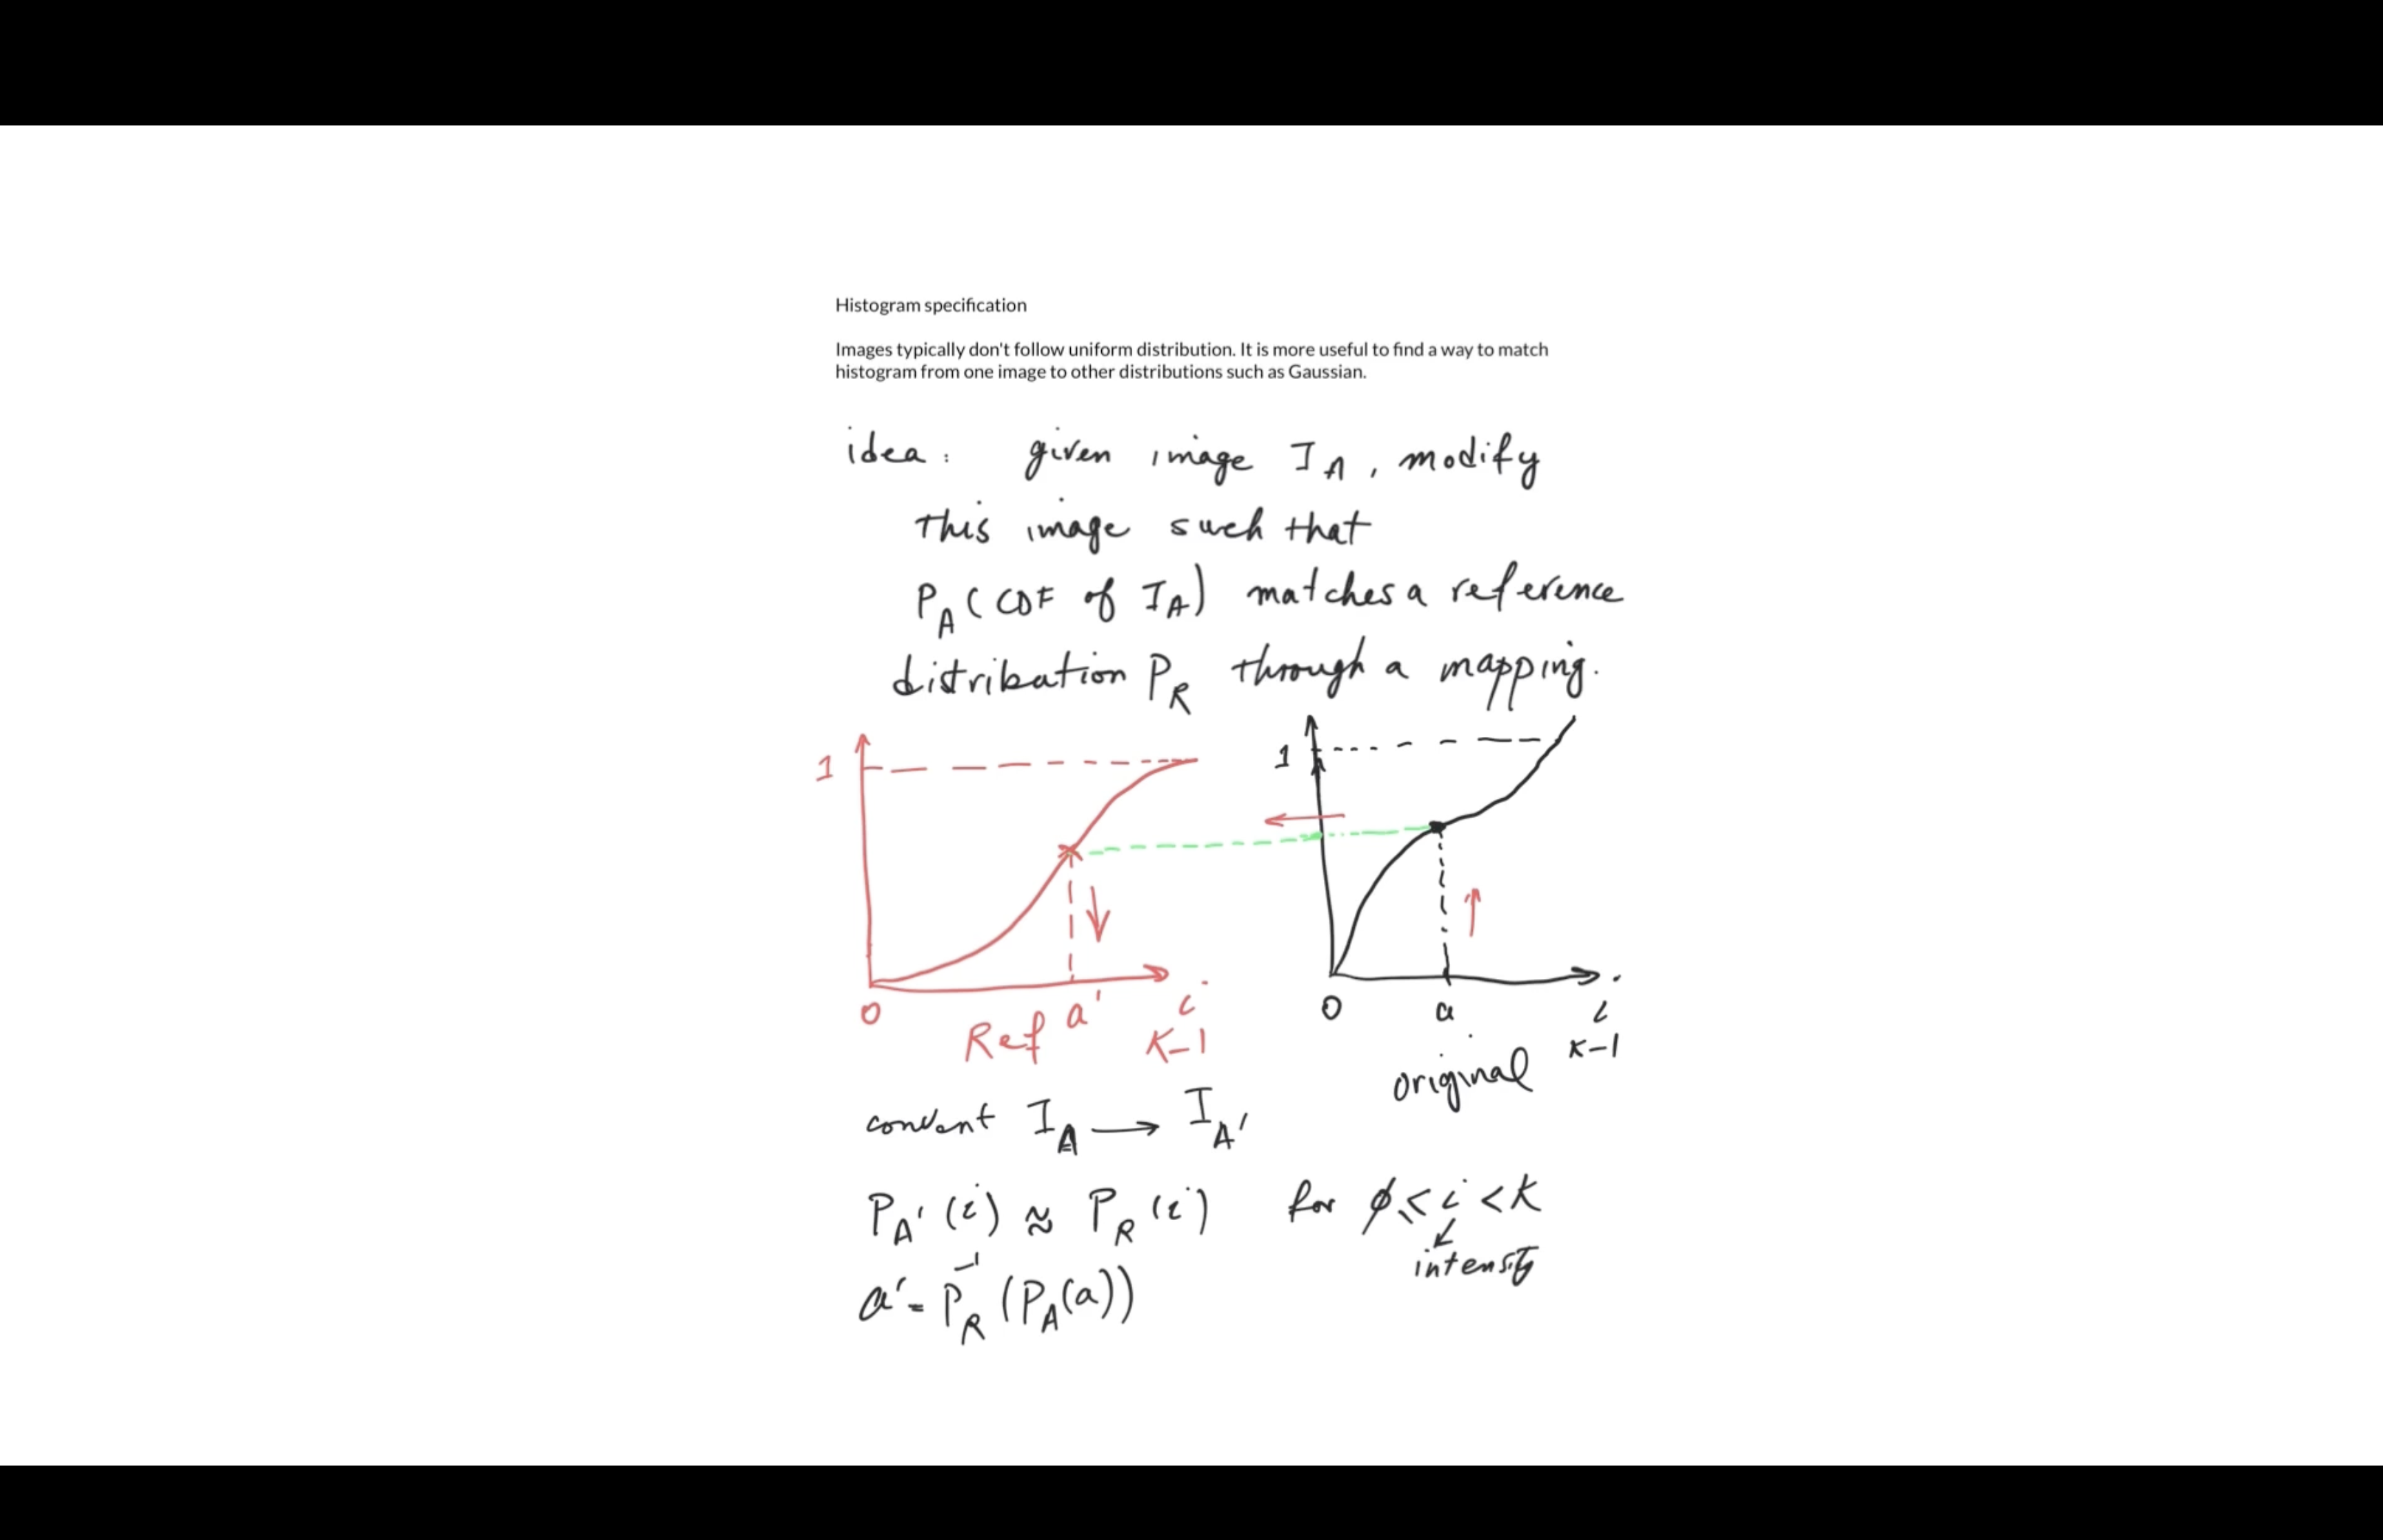 Histogram specification
Images typically don't follow uniform distribution. It is more useful to find a way to match
histogram from one image to other distributions such as Gaussian.
idea: given image I_A, modify
this image such that
P_A (CDF of I_A) matches a reference
distribution P_R through a mapping.
1
0 a' i
Ref K-1
1
0 a i
K-1
original
convert I_A → I_A'
P_A'(i) ≈ P_R(i) for ϕ ≤ i < K
intensity
a' = P_R^-1 (P_A(a))